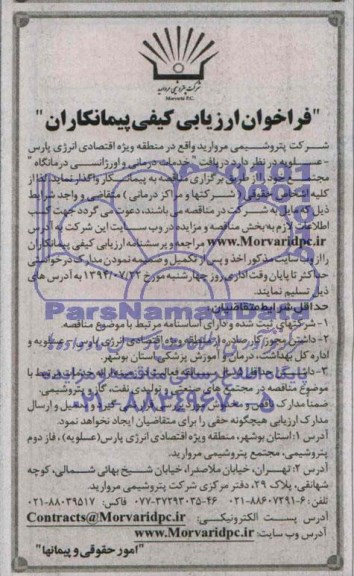 شرکت پتروشیمی مروارید
Morvarid P.C.
"فراخوان ارزیابی کیفی پیمانکاران"
شرکت پتروشیمی مروارید واقع در منطقه ویژه اقتصادی انرژی پارس
- عسلویه در نظر دارد دریافت "خدمات درمانی و اورژانسی درمانگاه"
مجتمع خود را از طریق برگزاری مناقصه به پیمانکار واگذار نماید. لذا از
کلیه اشخاص حقوقی (شرکتها و مراکز درمانی) متقاضی و واجد شرایط
ذیل که مایل به شرکت در مناقصه می باشند، دعوت می گردد جهت کسب
اطلاعات لازم به بخش مناقصه و مزایده در وب سایت این شرکت به آدرس
www.Morvaridpc.ir مراجعه و پرسشنامه ارزیابی کیفی پیمانکاران
را از وب سایت مذکور اخذ و پس از تکمیل و ضمیمه نمودن مدارک درخواستی
حداکثر تا پایان وقت اداری روز چهارشنبه مورخ ۱۳۹۴/۰۷/۲۲ به آدرس های
ذیل تسلیم نمایند.
حداقل شرایط متقاضیان:
۱- شرکتهای ثبت شده و دارای اساسنامه مرتبط با موضوع مناقصه.
۲- داشتن مجوز کار صادره از منطقه ویژه اقتصادی انرژی پارس - عسلویه و
اداره کل بهداشت، درمان و آموزش پزشکی استان بوشهر.
۳- داشتن حداقل سال سابقه فعالیت در زمینه ارائه خدمات مرتبط با
موضوع مناقصه در مجتمع های صنعتی و تولیدی نفت، گاز و پتروشیمی.
ضمنا مدارک ناقص و مخدوش مورد بررسی قرار نمی گیرد و تحویل و ارسال
مدارک ارزیابی هیچگونه حقی را برای متقاضیان ایجاد نخواهد نمود.
آدرس ۱: استان بوشهر، منطقه ویژه اقتصادی انرژی پارس (عسلویه)، فاز دوم
پتروشیمی، مجتمع پتروشیمی مروارید.
آدرس ۲: تهران، خیابان ملاصدرا، خیابان شیخ بهائی شمالی، کوچه
شهانقی، پلاک ۲۹، دفتر مرکزی شرکت پتروشیمی مروارید.
تلفن: ۶-۰۲۱-۸۸۶۰۷۲۹۱ ۴۶-۰۷۷-۳۷۲۹۳۰۳۵ فاکس: ۰۲۱-۸۸۰۳۹۵۱۷
آدرس پست الکترونیکی: Contracts@Morvaridpc.ir
آدرس وب سایت: www.Morvaridpc.ir
"امور حقوقی و پیمانها"
ParsNamadData
۰۲۱-۸۸۳۴۹۶۷۰-۵